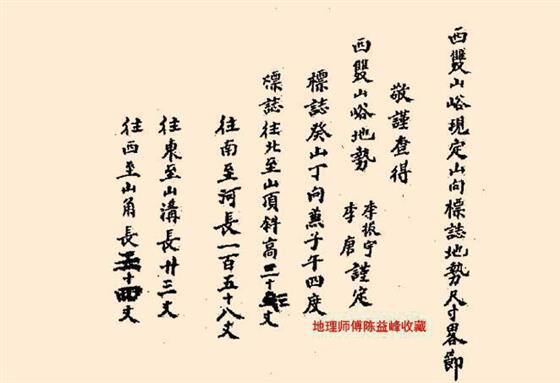 西雙山峪現定山向標誌地勢尺寸畧節
敬謹查得
西雙山峪地勢
李振宇
李唐
謹定
標誌癸山丁向蕉子午四度
標誌往北至山頂斜高二十丈
往南至河長一百五十八丈
往東至山溝長廿三丈
往西至山角長十丈
地理师傅陈益峰收藏